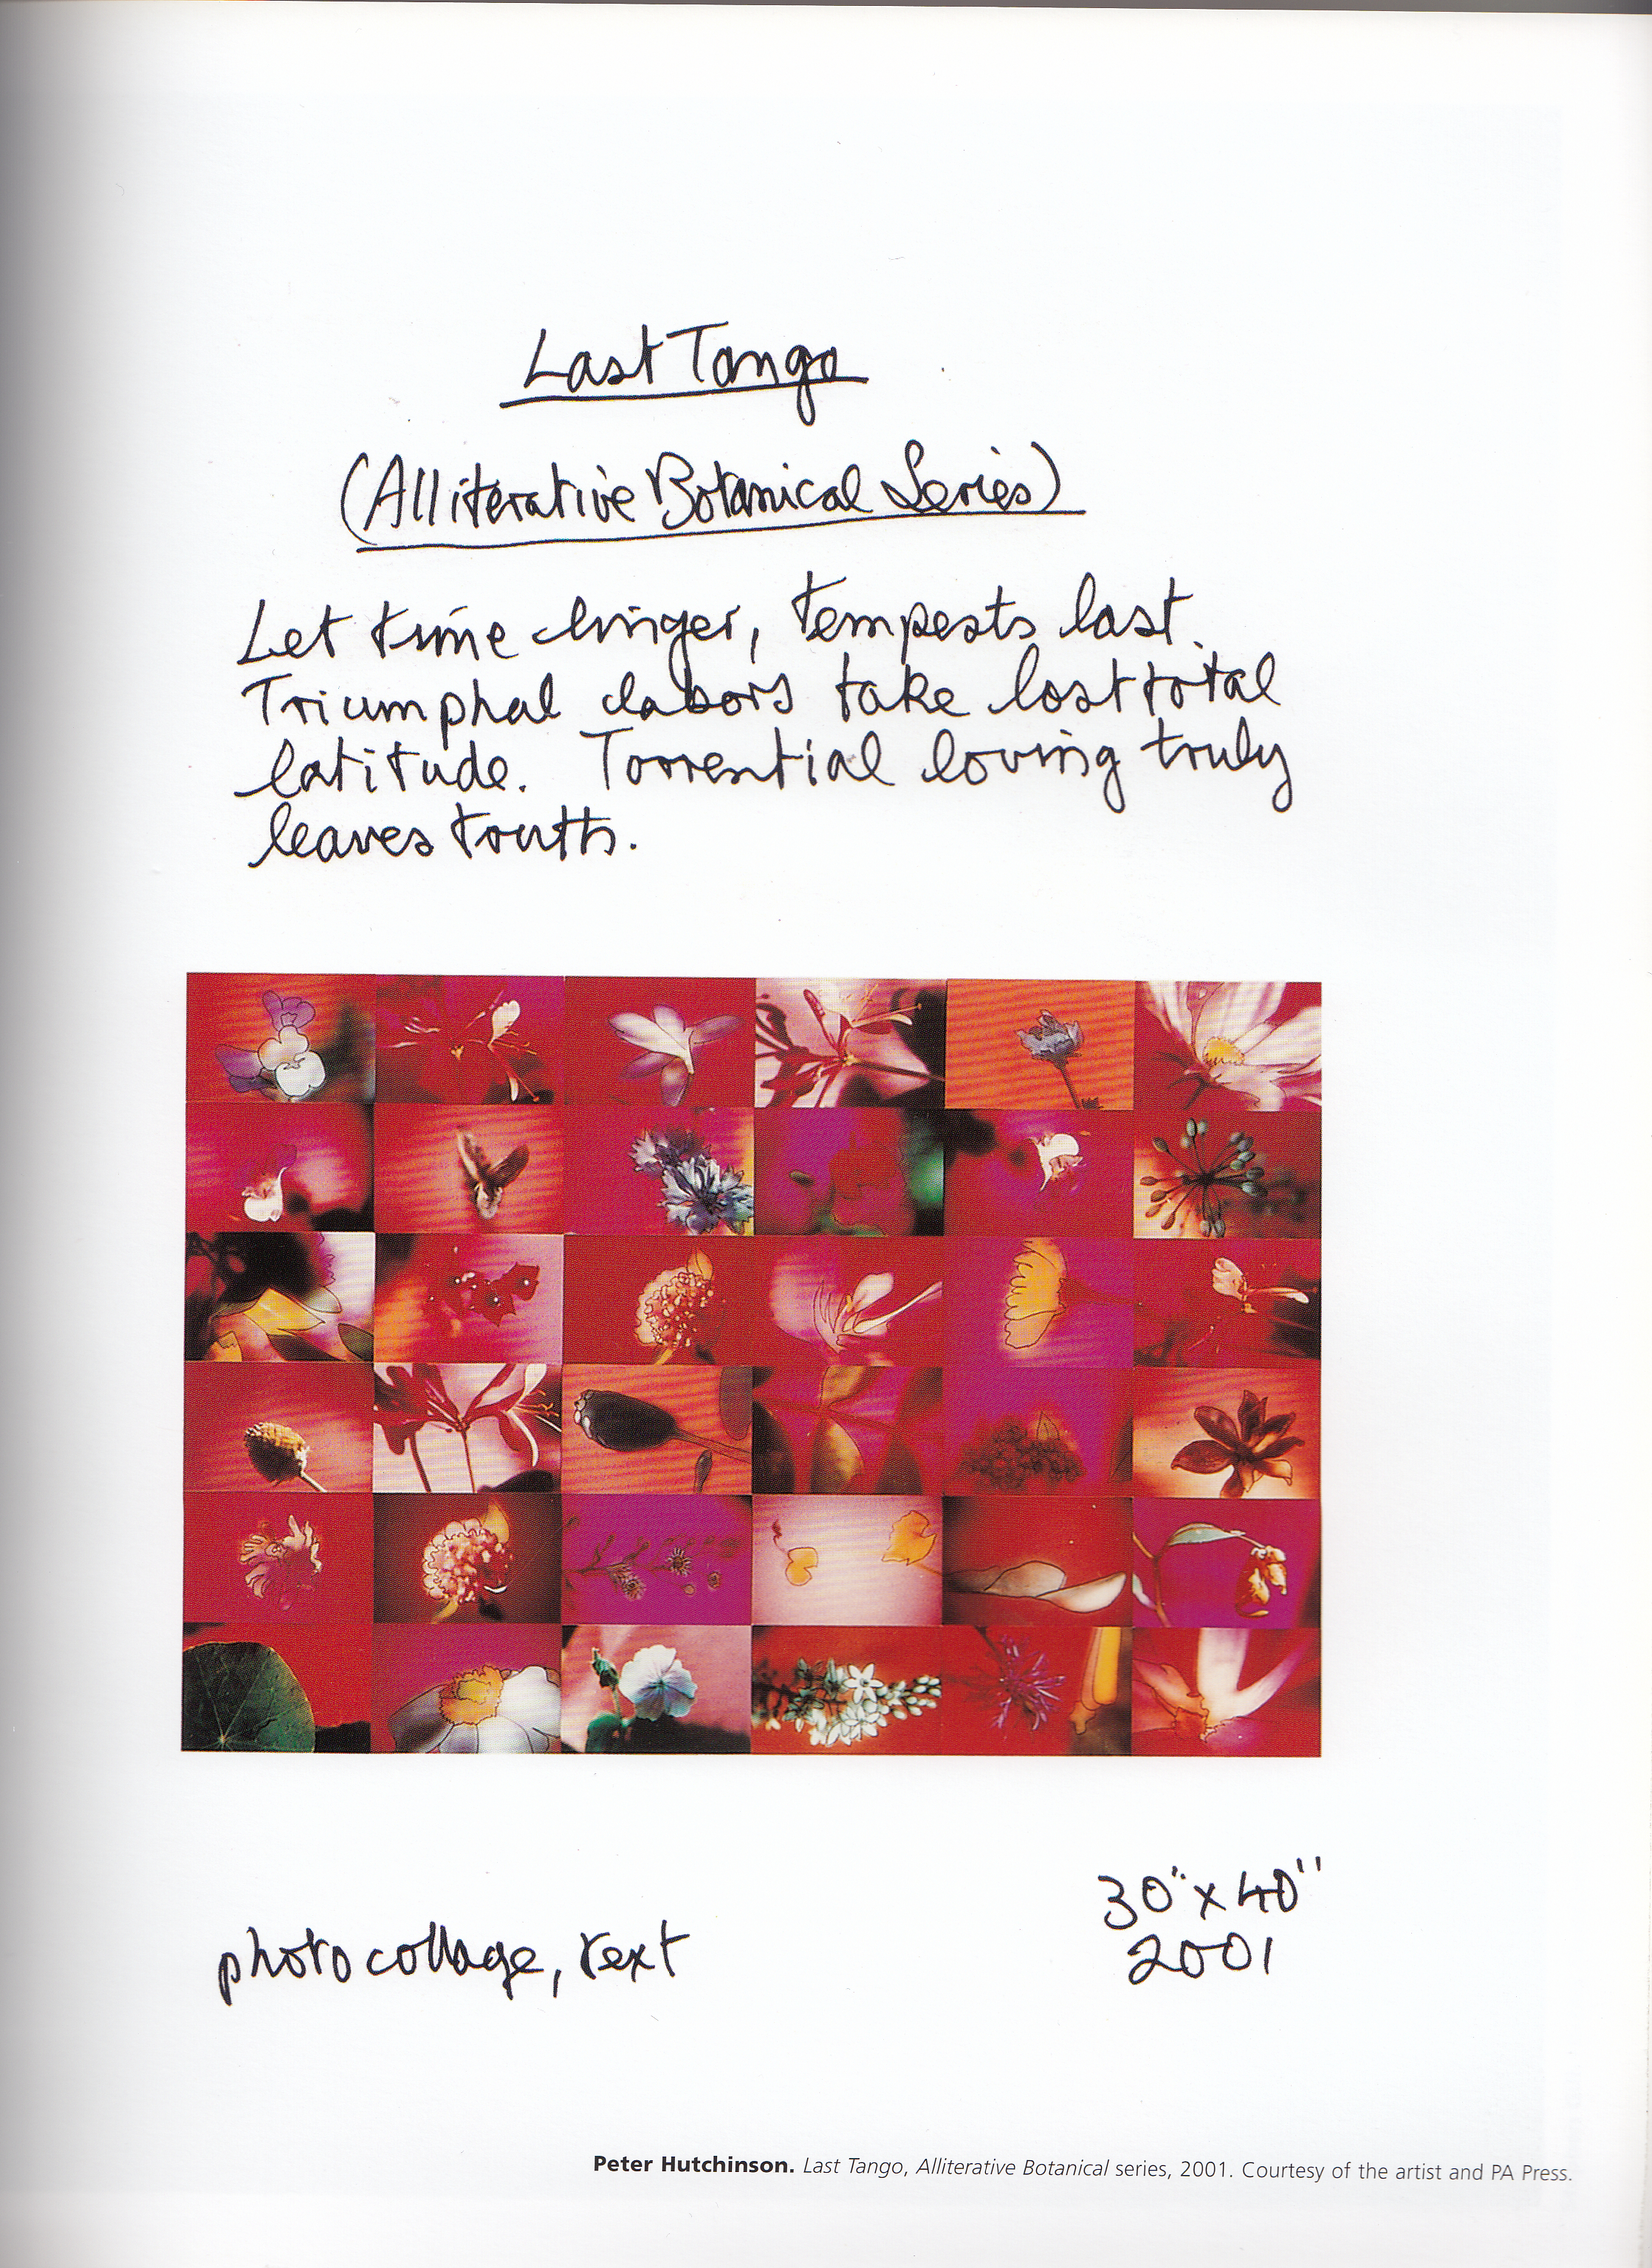 Last Tango
(Alliterative Botanical Series)
Let time linger, tempests last.
Triumphal labors take lost total
latitude. Torrential loving truly
leaves truth.
photo collage, text
30" x 40"
2001
Peter Hutchinson. Last Tango, Alliterative Botanical series, 2001. Courtesy of the artist and PA Press.